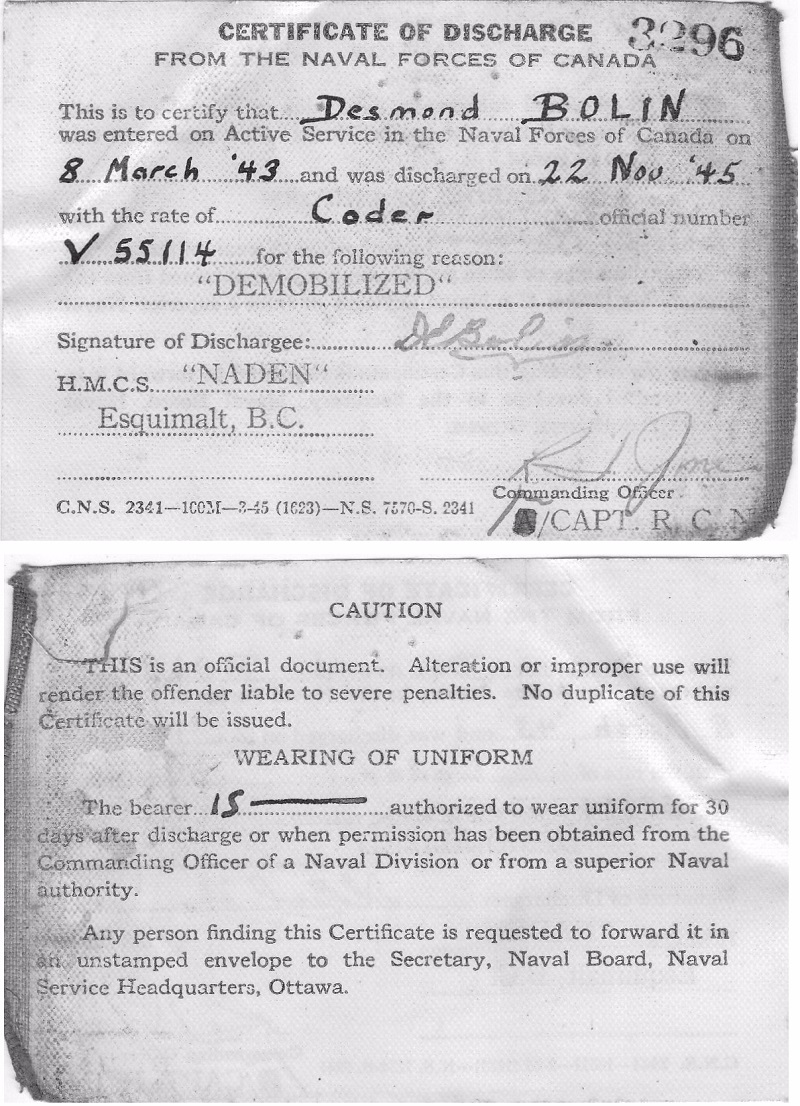 CERTIFICATE OF DISCHARGE 3296
FROM THE NAVAL FORCES OF CANADA
This is to certify that Desmond BOLIN
was entered on Active Service in the Naval Forces of Canada on
8 March '43 and was discharged on 22 Nov '45
with the rate of Coder official number
V 55114 for the following reason:
"DEMOBILIZED"
Signature of Dischargee: D Bolin
H.M.C.S. "NADEN"
Esquimalt, B.C.
Commanding Officer
C.N.S. 2341—100M—3-45 (1623)—N.S. 7570-S. 2341
A/CAPT. R. C. N
CAUTION
THIS is an official document. Alteration or improper use will
render the offender liable to severe penalties. No duplicate of this
Certificate will be issued.
WEARING OF UNIFORM
The bearer IS authorized to wear uniform for 30
days after discharge or when permission has been obtained from the
Commanding Officer of a Naval Division or from a superior Naval
authority.
Any person finding this Certificate is requested to forward it in
an unstamped envelope to the Secretary, Naval Board, Naval
Service Headquarters, Ottawa.